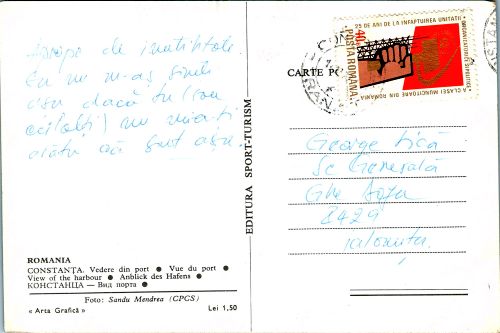 Aproape de inutibtale.
Eu ne m-aș simți
așa dacă tu (sau
ceilalți) nu mi-ați
arăta că sunt așa.
ROMANIA
CONSTANȚA. Vedere din port ● Vue du port ●
View of the harbour ● Anblick des Hafens ●
КОНСТАНЦА — Вид порта ●
Foto: Sandu Mendrea (CPCS)
« Arta Grafică » Lei 1,50
EDITURA SPORT-TURISM
CARTE PO
25 DE ANI DE LA INFAPTUIREA UNITATII
A CLASEI MUNCITOARE DIN ROMANIA
POSTA ROMANA
40
George Fică
Șc Generală
Ghe
8429
Ialomița